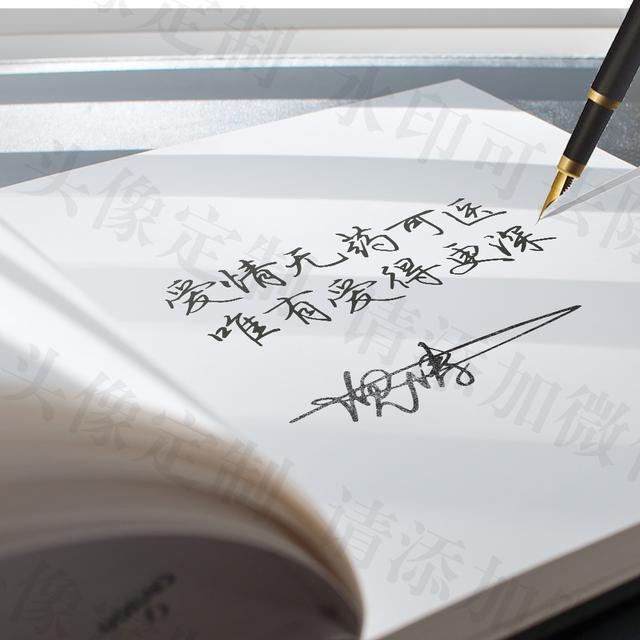 爱情无药可医
唯有爱得更深
头像定制 水印可去除
头像定制 请添加微信
头像定制 请添加微